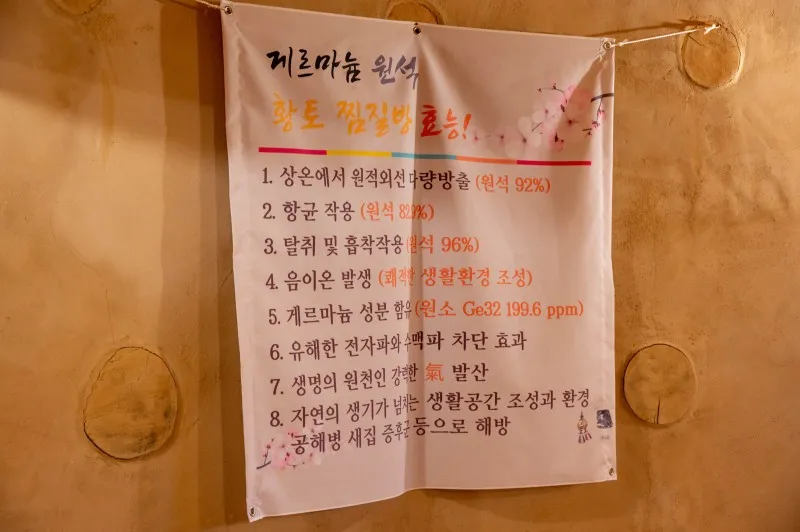 게르마늄 원석
황토 찜질방 효능!
1. 상온에서 원적외선 다량방출 (원석 92%)
2. 항균 작용 (원석 82.9%)
3. 탈취 및 흡착작용 (원석 96%)
4. 음이온 발생 (쾌적한 생활환경 조성)
5. 게르마늄 성분 함유 (원소 Ge32 199.6 ppm)
6. 유해한 전자파와 수맥파 차단 효과
7. 생명의 원천인 강력한 氣 발산
8. 자연의 생기가 넘치는 생활공간 조성과 환경
공해병 새집 증후군 등으로 해방